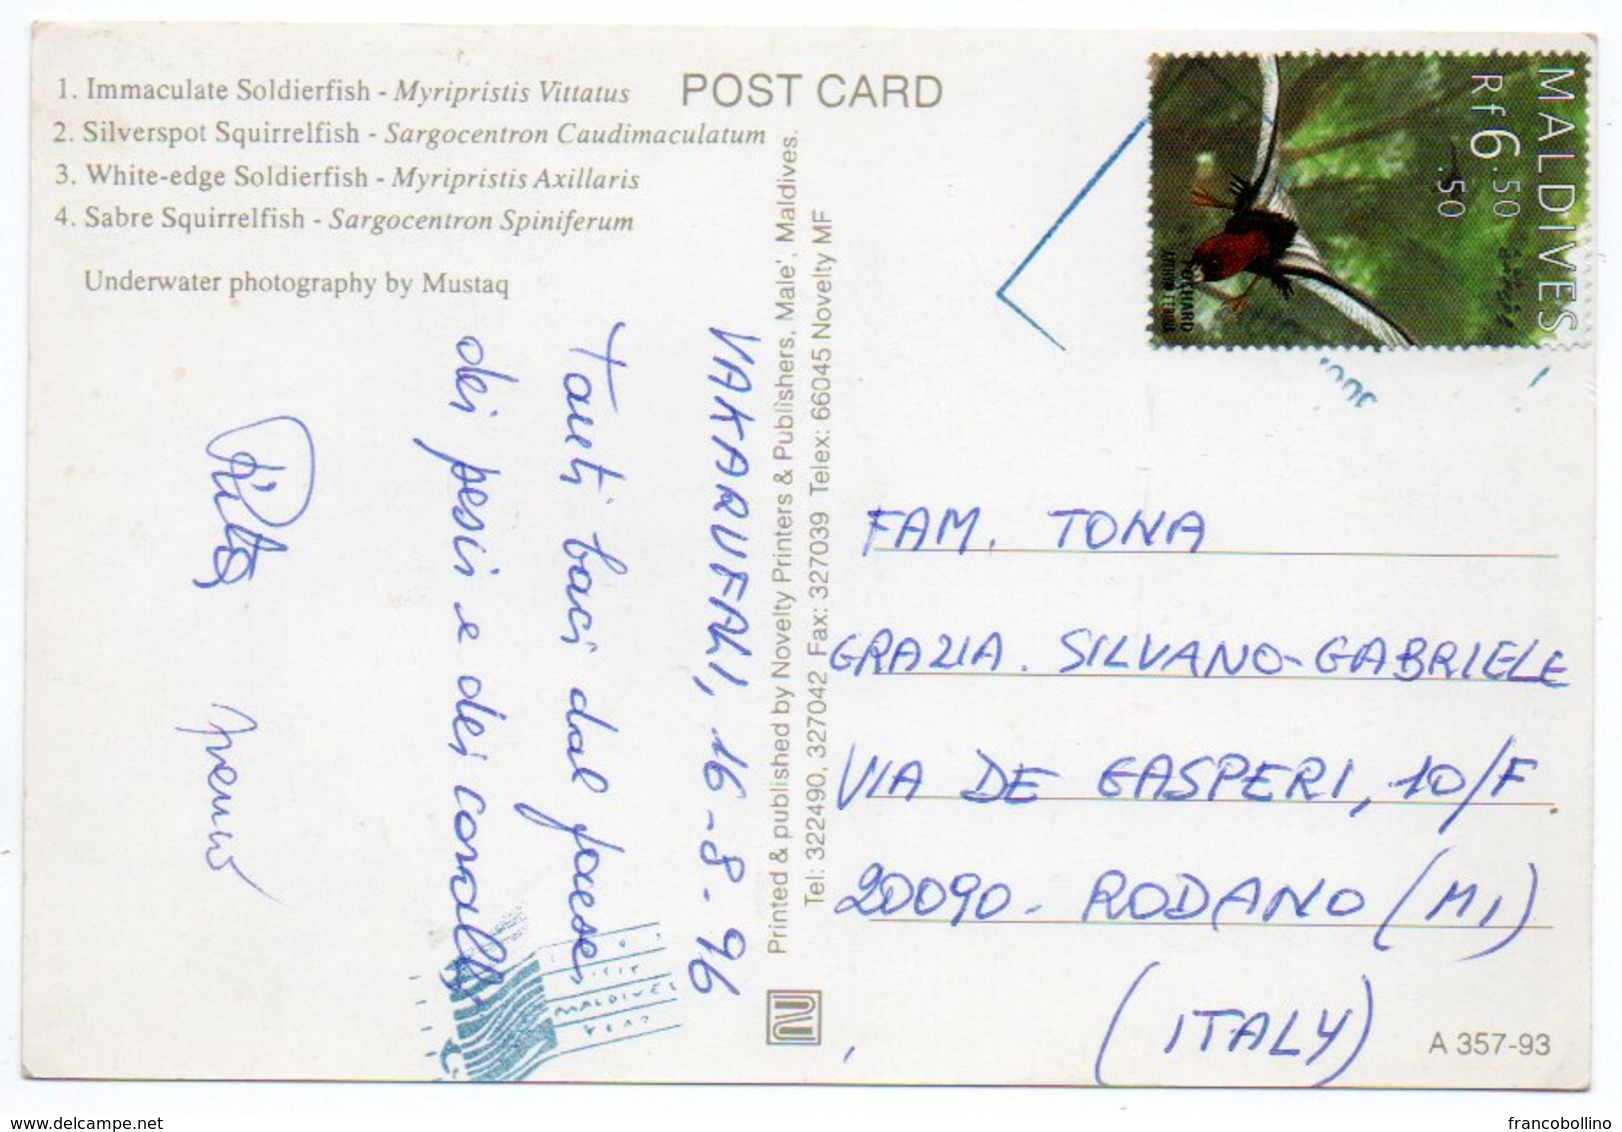 1. Immaculate Soldierfish - Myripristis Vittatus
2. Silverspot Squirrelfish - Sargocentron Caudimaculatum
3. White-edge Soldierfish - Myripristis Axillaris
4. Sabre Squirrelfish - Sargocentron Spiniferum
Underwater photography by Mustaq
POST CARD
MALDIVES
Rf 6.50
.50
VAKARUFALI, 16-8-96
Tanti baci dal paese
dei pesci e dei coralli
Printed & published by Novelty Printers & Publishers, Male', Maldives.
Tel: 322490, 327042 Fax: 327039 Telex: 66045 Novelty MF
FAM. TONA
GRAZIA. SILVANO-GABRIELE
VIA DE GASPERI, 10/F
20090 - RODANO (MI)
(ITALY)
VISIT
MALDIVES
YEAR
A 357-93
francobollino